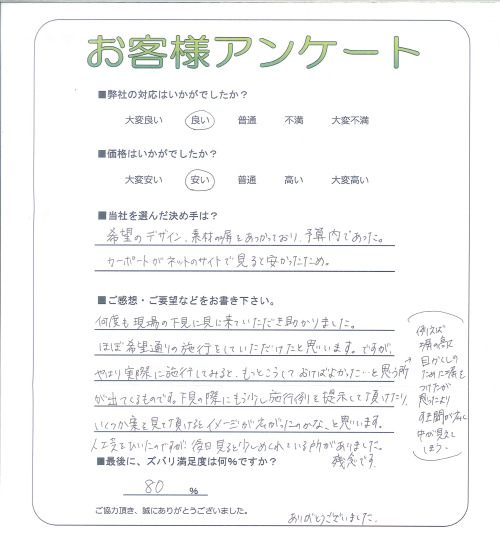 お客様アンケート
■弊社の対応はいかがでしたか？
大変良い 良い 普通 不満 大変不満
■価格はいかがでしたか？
大変安い 安い 普通 高い 大変高い
■当社を選んだ決め手は？
希望のデザイン、素材の塀をあつかっており、予算内であった。
カーポートがネットのサイトで見ると安かったため。
■ご感想・ご要望などをお書き下さい。
何度も現場の下見に見に来ていただき助かりました。
ほぼ希望通りの施行をしていただけたと思います。ですが、
やはり実際に施行してみると、もっとこうしておけばよかった…と思う所
が出てくるものです。下見の際にもう少し施行例を提示して頂けたり、
いくつか実を見て頂けるとイメージが広がったのかな、と思います。
人工芝をひいたのですが、後日見ると少しめくれている所がありました。
残念です。
例えば
塀の
目かくしの
ための塀を
つけたが
思ったより
すき間が広く
中が見えて
しまう。
■最後に、ズバリ満足度は何%ですか？
80 %
ご協力頂き、誠にありがとうございました。
ありがとうございました。